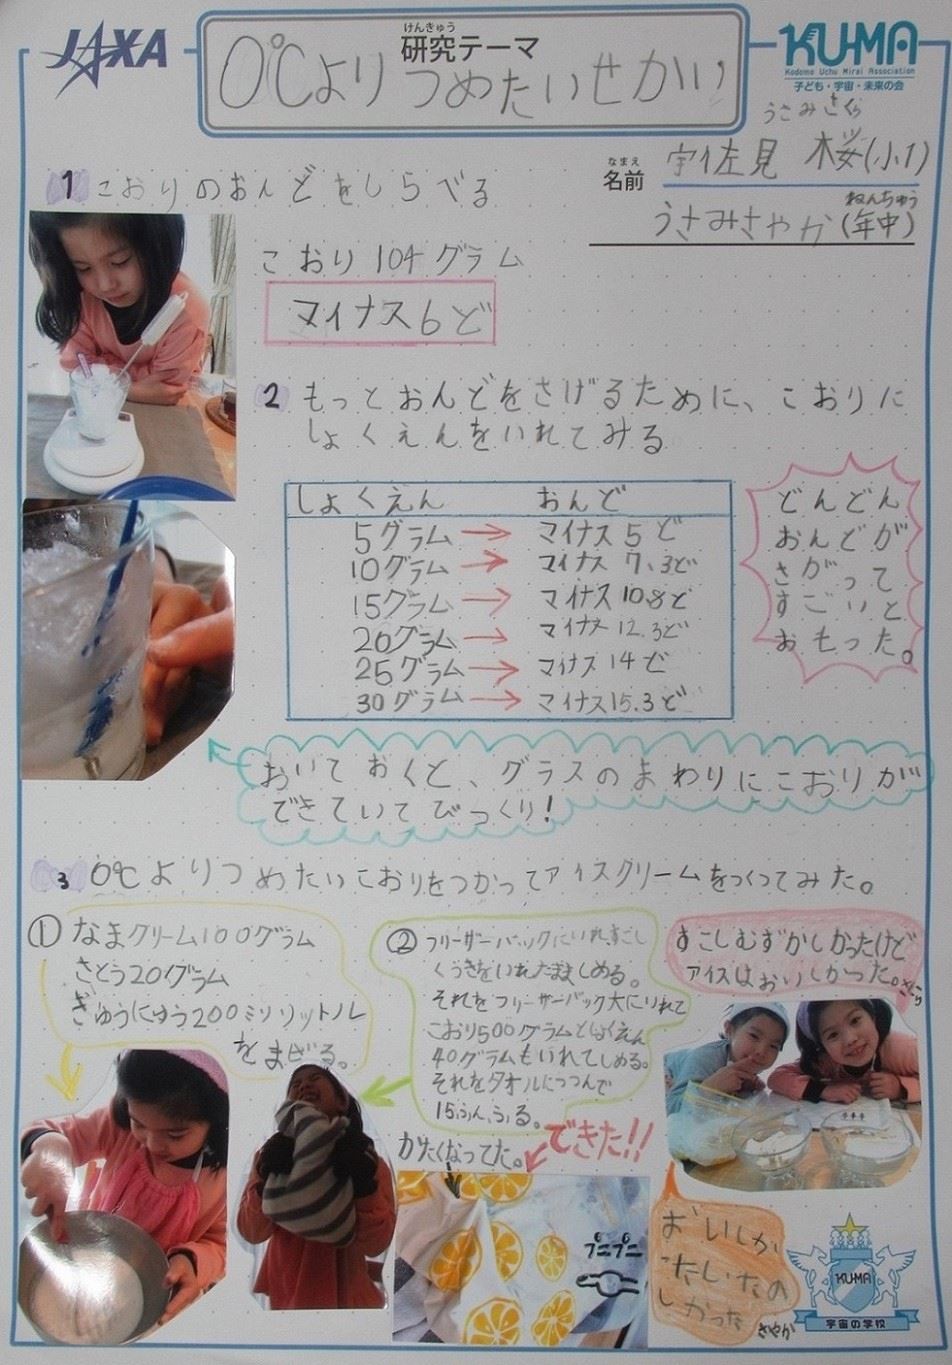 JAXA
けんきゅう
研究テーマ
0℃より つめたいせかい
KU-MA
Kodomo Uchu Mirai Association
子ども・宇宙・未来の会
うさみ さくら
なまえ
名前
宇佐見 桜(小1)
ねんちゅう
うさみさやか(年中)
1 こおりのおんどをしらべる
こおり104グラム
マイナス6ど
2 もっとおんどをさげるために、こおりに
しょくえんをいれてみる
しょくえん おんど
5グラム → マイナス5ど
10グラム → マイナス7.3ど
15グラム → マイナス10.8ど
20グラム → マイナス12.3ど
25グラム → マイナス14ど
30グラム → マイナス15.3ど
どんどん
おんどが
さがって
すごいと
おもった。
おいておくと、グラスのまわりにこおりが
できていてびっくり!
3 0℃よりつめたいこおりをつかってアイスクリームをつくってみた。
① なまクリーム100グラム
さとう20グラム
ぎゅうにゅう200ミリリットル
をまぜる。
② フリーザーバックにいれすこし
くうきをいれたまましめる。
それをフリーザーバック大にいれて
こおり500グラムとしょくえん
40グラムもいれてしめる。
それをタオルにつつんで
15ふん、ふる。
かたくなってた。
できた!!
プニプニ
すこしむずかしかったけど
アイスはおいしかった。
おいしか
ったしたの
しかった
さやか
KU-MA
宇宙の学校